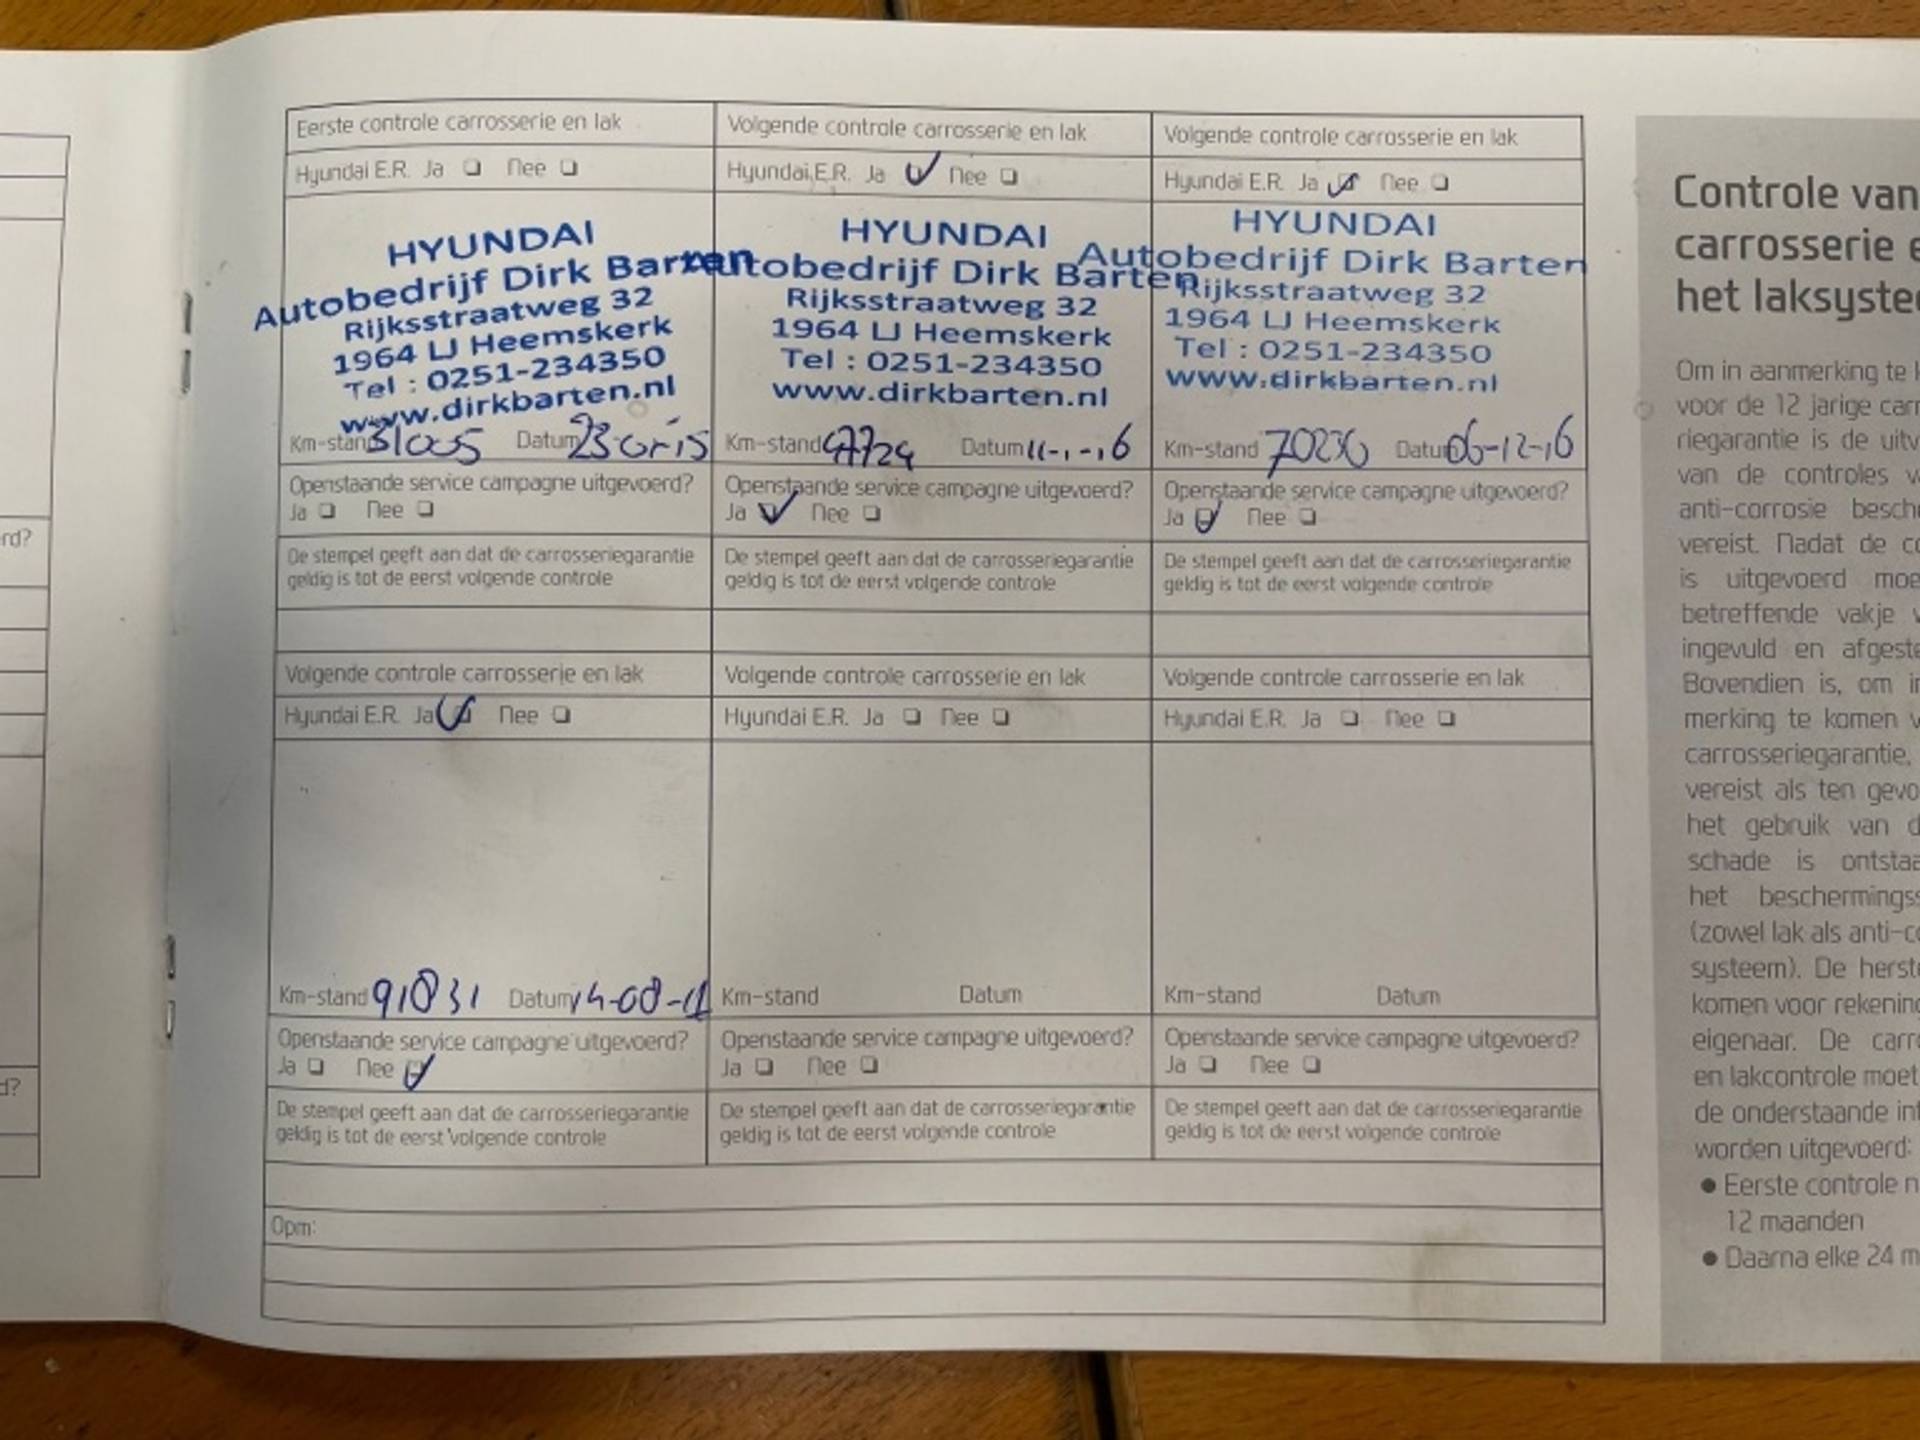 Eerste controle carrosserie en lak
Hyundai E.R. Ja Nee
HYUNDAI
Autobedrijf Dirk Barten
Rijksstraatweg 32
1964 LJ Heemskerk
Tel : 0251-234350
www.dirkbarten.nl
Km-stand 31005 Datum
Openstaande service campagne uitgevoerd?
Ja Nee
De stempel geeft aan dat de carrosseriegarantie
geldig is tot de eerst volgende controle
Volgende controle carrosserie en lak
Hyundai E.R. Ja Nee
HYUNDAI
Autobedrijf Dirk Barten
Rijksstraatweg 32
1964 LJ Heemskerk
Tel : 0251-234350
www.dirkbarten.nl
Km-stand 47724 Datum 11-1-16
Openstaande service campagne uitgevoerd?
Ja Nee
De stempel geeft aan dat de carrosseriegarantie
geldig is tot de eerst volgende controle
Volgende controle carrosserie en lak
Hyundai E.R. Ja Nee
HYUNDAI
Autobedrijf Dirk Barten
Rijksstraatweg 32
1964 LJ Heemskerk
Tel : 0251-234350
www.dirkbarten.nl
Km-stand Datum 06-12-16
Openstaande service campagne uitgevoerd?
Ja Nee
De stempel geeft aan dat de carrosseriegarantie
geldig is tot de eerst volgende controle
Volgende controle carrosserie en lak
Hyundai E.R. Ja Nee
Km-stand 91831 Datum
Openstaande service campagne uitgevoerd?
Ja Nee
De stempel geeft aan dat de carrosseriegarantie
geldig is tot de eerst volgende controle
Volgende controle carrosserie en lak
Hyundai E.R. Ja Nee
Km-stand Datum
Openstaande service campagne uitgevoerd?
Ja Nee
De stempel geeft aan dat de carrosseriegarantie
geldig is tot de eerst volgende controle
Volgende controle carrosserie en lak
Hyundai E.R. Ja Nee
Km-stand Datum
Openstaande service campagne uitgevoerd?
Ja Nee
De stempel geeft aan dat de carrosseriegarantie
geldig is tot de eerst volgende controle
Opm:
Controle van
carrosserie e
het laksystee
Om in aanmerking te k
voor de 12 jarige carr
riegarantie is de uitv
van de controles v
anti-corrosie besche
vereist. Nadat de co
is uitgevoerd moe
betreffende vakje v
ingevuld en afgeste
Bovendien is, om in
merking te komen v
carrosseriegarantie,
vereist als ten gevo
het gebruik van d
schade is ontstaa
het beschermingss
(zowel lak als anti-co
systeem). De herste
komen voor rekening
eigenaar. De carro
en lakcontrole moet
de onderstaande int
worden uitgevoerd:
• Eerste controle n
12 maanden
• Daarna elke 24 m
rd?
d?